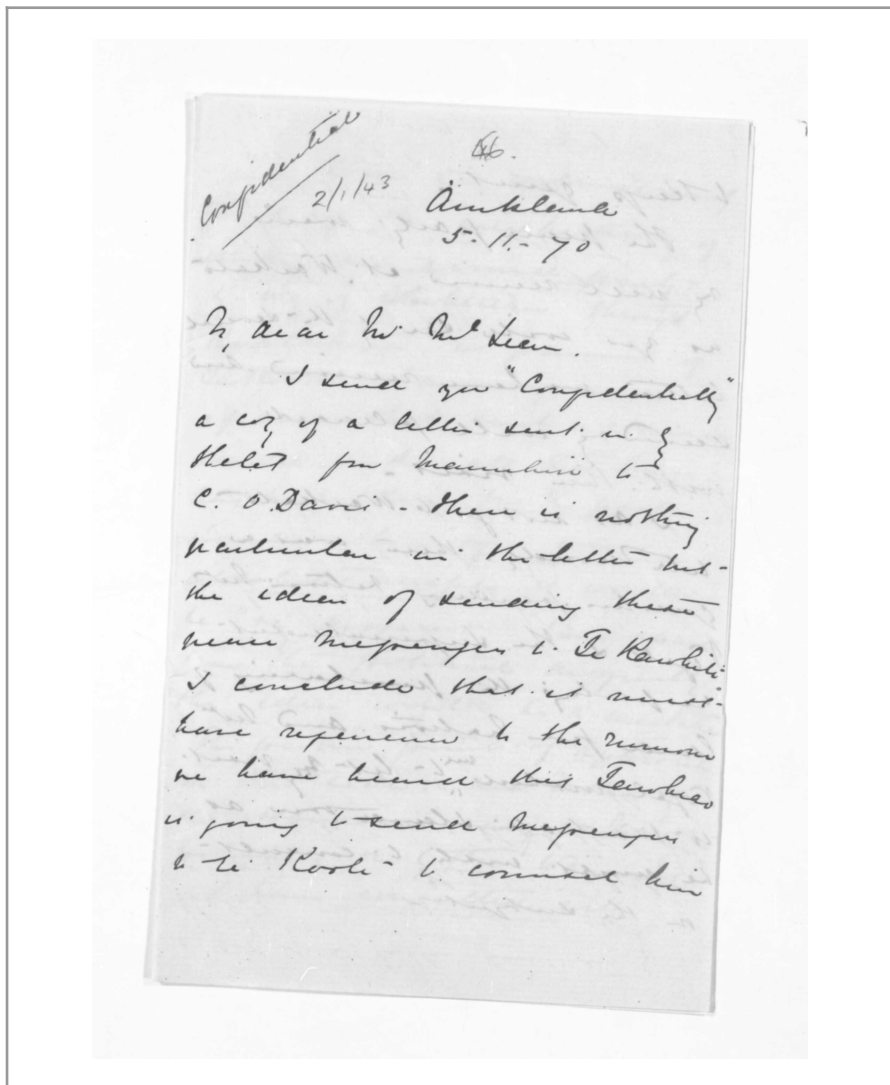 Confidential
2/1/43
Auckland
5-11-70
My dear Mr McLean.
I send you "Confidentially"
a copy of a letter sent in by
from Manuhiri to
C. O. Davis - there is nothing
particular in the letter but
the idea of sending these
peace messengers to Te
I conclude that it must
have reference to the rumour
we have heard that Tawhiao
is going to send messengers
to Te Kooti to counsel him